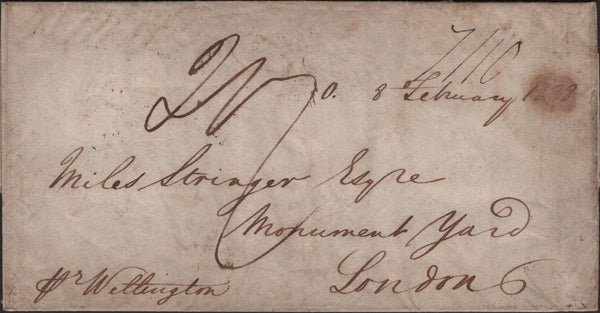 2/10
8 February 1839
Miles Stringer Esqre
Monument Yard
London
pr Wellington